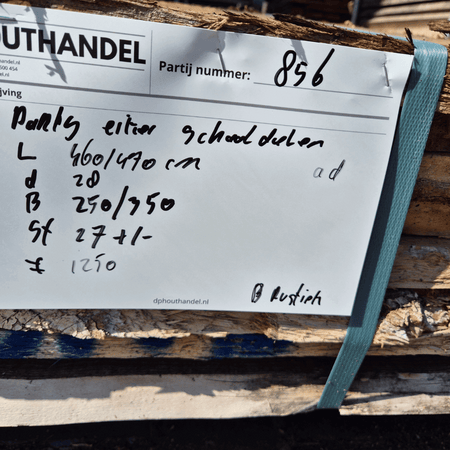 OUTHANDEL
Partij nummer: 856
jving
Partij eiken schaaldelen
L 460/470 cm
ad
d 28
B 250/350
St 27 +/-
£ 1250
B Rustiek
dphouthandel.nl